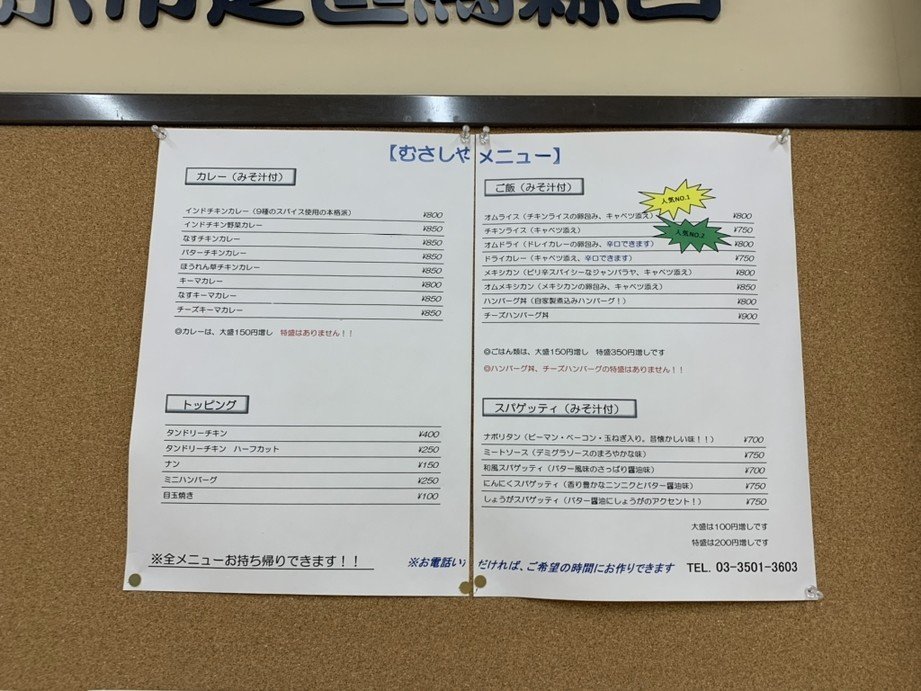 【むさしや メニュー】
カレー（みそ汁付）
インドチキンカレー（9種のスパイス使用の本格派） ¥800
インドチキン野菜カレー ¥850
なすチキンカレー ¥850
バターチキンカレー ¥850
ほうれん草チキンカレー ¥850
キーマカレー ¥800
なすキーマカレー ¥850
チーズキーマカレー ¥850
◎カレーは、大盛150円増し 特盛はありません！！
トッピング
タンドリーチキン ¥400
タンドリーチキン ハーフカット ¥250
ナン ¥150
ミニハンバーグ ¥250
目玉焼き ¥100
※全メニューお持ち帰りできます！！
ご飯（みそ汁付）
人気NO.1
オムライス（チキンライスの卵包み、キャベツ添え） ¥800
チキンライス（キャベツ添え） ¥750
人気NO.2
オムドライ（ドレイカレーの卵包み、辛口できます） ¥800
ドライカレー（キャベツ添え、辛口できます） ¥750
メキシカン（ピリ辛スパイシーなジャンバラヤ、キャベツ添え） ¥800
オムメキシカン（メキシカンの卵包み、キャベツ添え） ¥850
ハンバーグ丼（自家製煮込みハンバーグ！） ¥800
チーズハンバーグ丼 ¥900
◎ごはん類は、大盛150円増し 特盛350円増しです
◎ハンバーグ丼、チーズハンバーグの特盛はありません！！
スパゲッティ（みそ汁付）
ナポリタン（ピーマン・ベーコン・玉ねぎ入り。昔懐かしい味！！） ¥700
ミートソース（デミグラソースのまろやかな味） ¥750
和風スパゲッティ（バター風味のさっぱり醤油味） ¥700
にんにくスパゲッティ（香り豊かなニンニクとバター醤油味） ¥750
しょうがスパゲッティ（バター醤油にしょうがのアクセント！） ¥750
大盛は100円増しです
特盛は200円増しです
※お電話いただければ、ご希望の時間にお作りできます TEL. 03-3501-3603